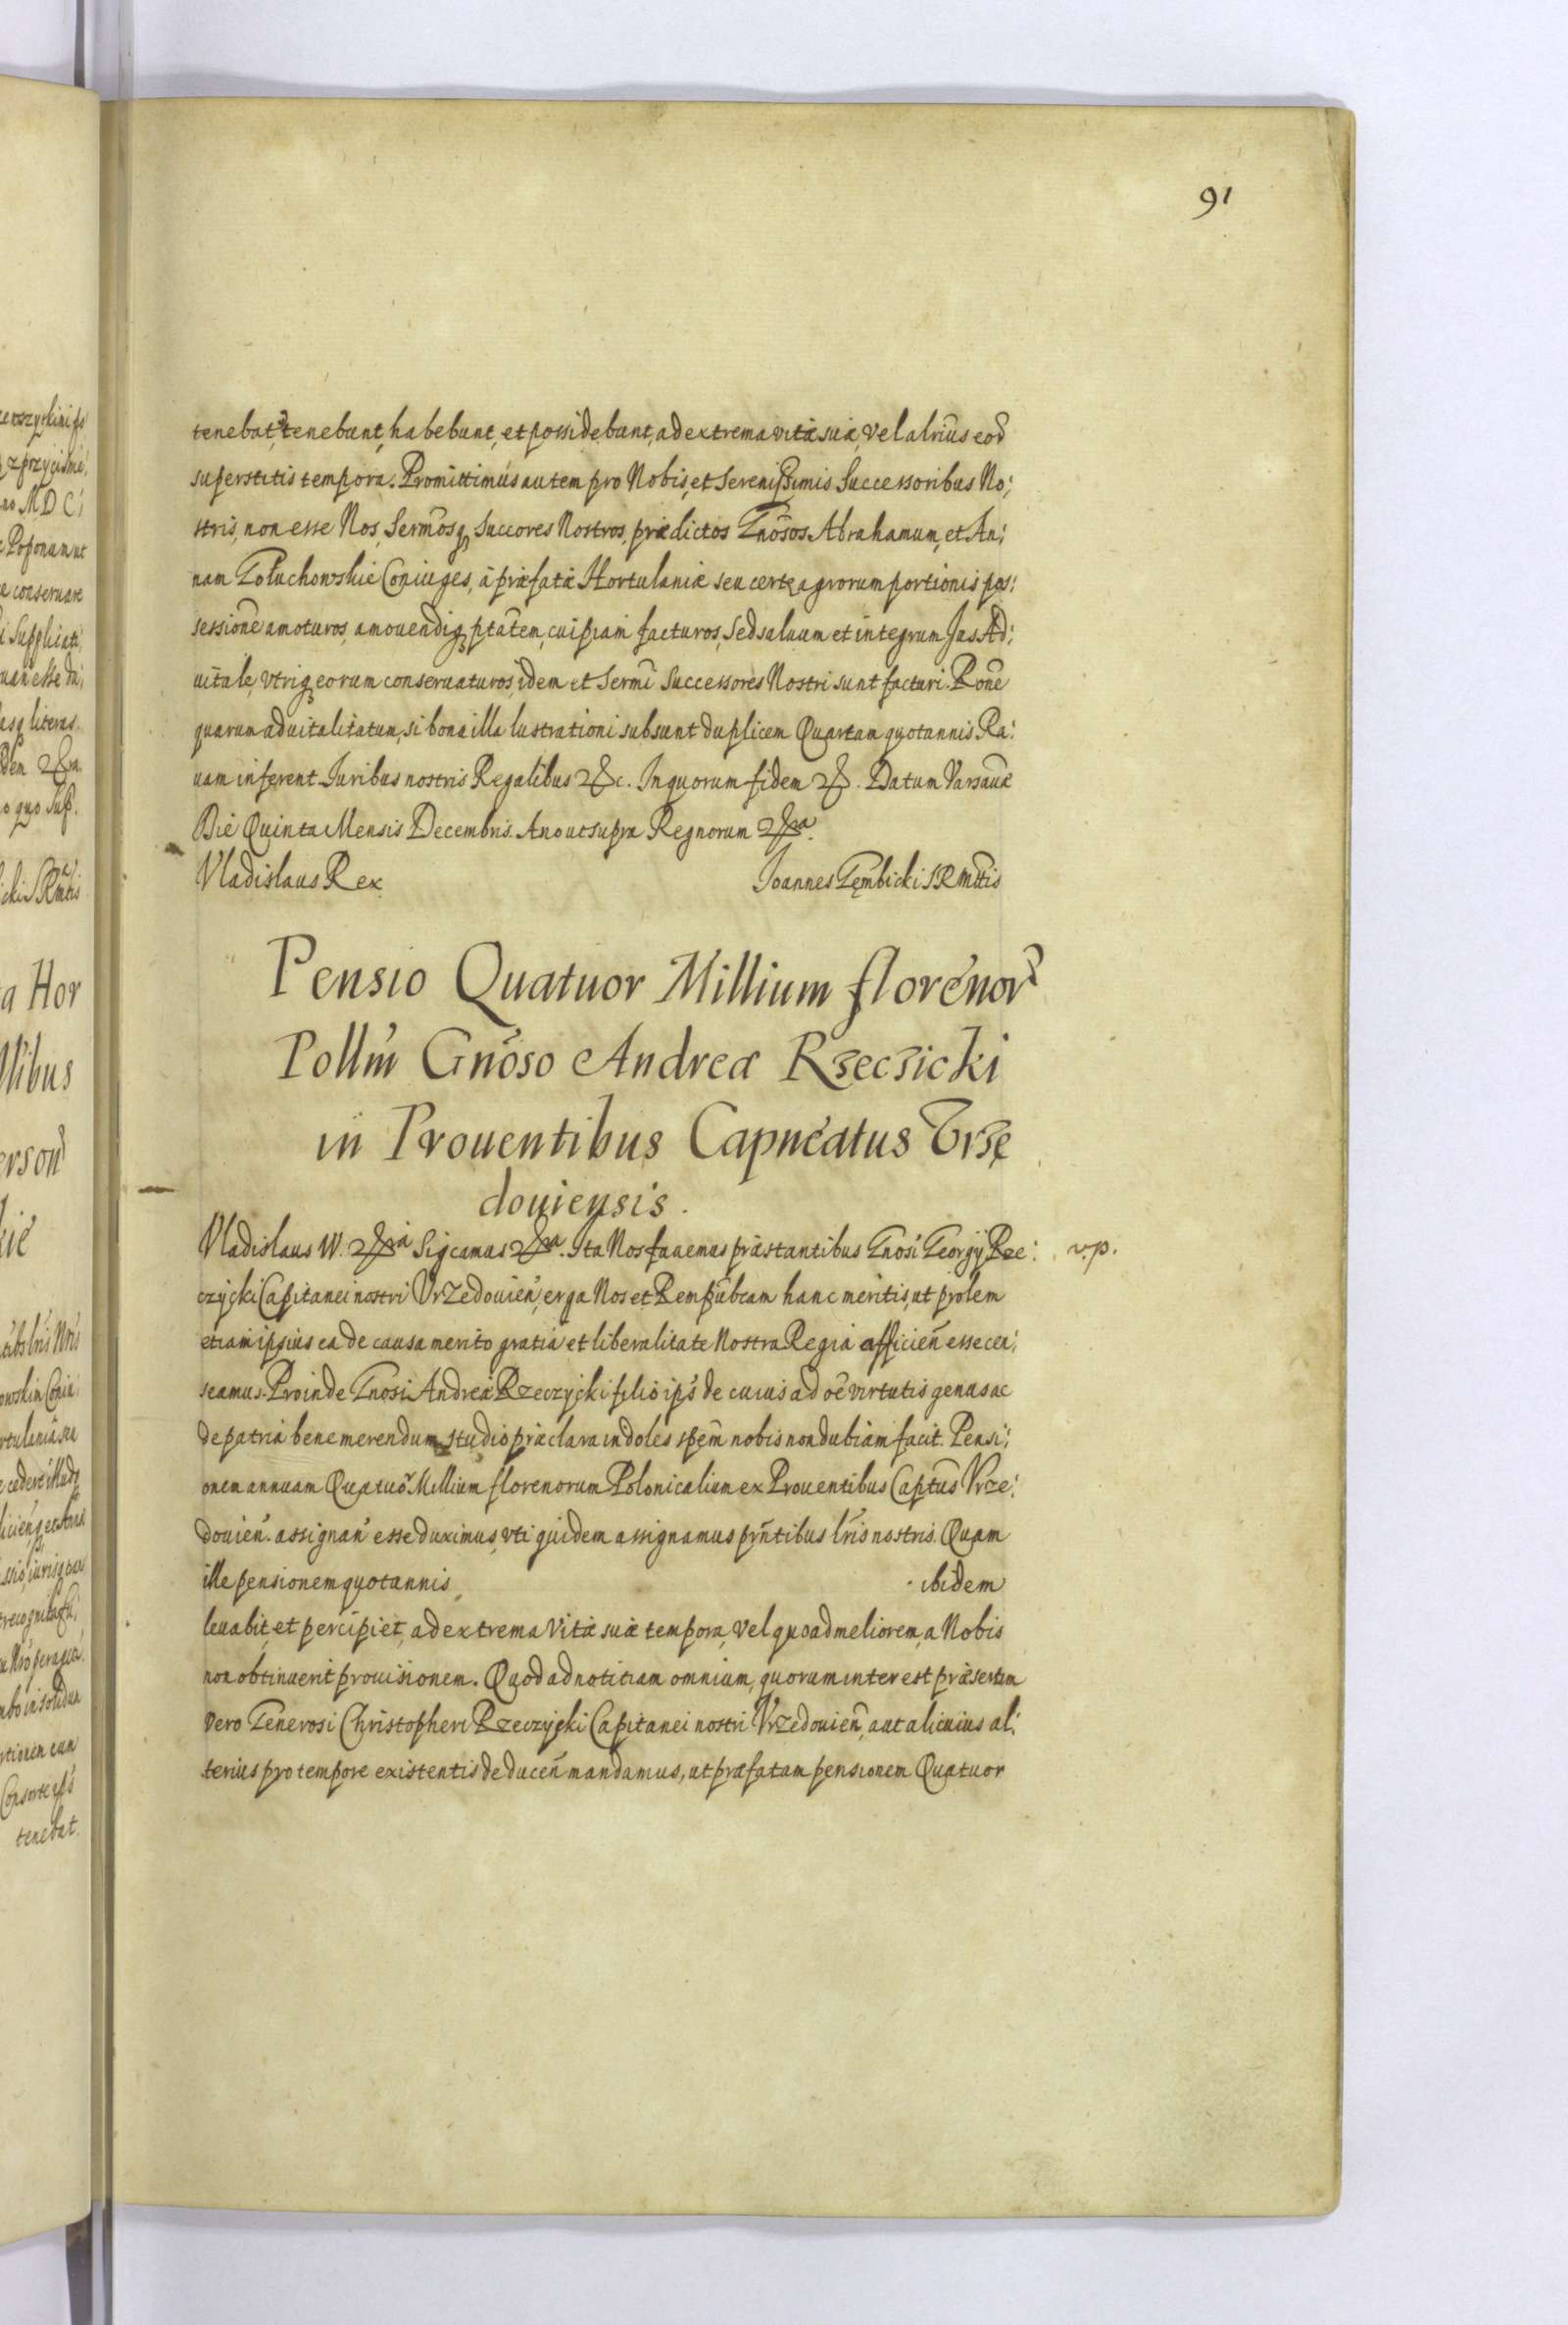 91
tenebat, tenebunt, habebunt, et possidebunt, ad extrema vitæ suæ, vel alrius eor
superstitis tempora. Promittimus autem pro Nobis, et Serenissimis Successoribus No:
stris, non esse Nos, Sermosq Succores Nostros, prædictos Gnosos Abrahamum, et An:
nam Gołuchowskie Coniuges, à præfatæ Hortulaniæ seu certæ agrorum portionis pos:
sessione amoturos, amouendiq ptatem, cuipiam facturos, Sed saluum et integrum Jus Ad:
uitale, vtriq eorum conseruaturos, idem et Sermi Successores Nostri sunt facturi. Rone
quarum aduitalitatum, si bona illa lustrationi subsunt duplicem Quartam quotannis Ra:
uam inferent Iuribus nostris Regalibus &c. In quorum fidem &. Datum Varsauæ
Die Quinta Mensis Decembris. Ano ut supra Regnorum &ra.
Vladislaus Rex Joannes Gębicki SRMttis
Pensio Quatuor Millium florenor
Pollm Gnoso Andreæ Rzeczicki
in Prouentibus Capneatus Vrzę
douiensis.
Vladislaus IV. &ra Sigcamus &ra. Ita Nos fauemus præstantibus Gnosi Georgij Rze: v.p.
czycki Capitanei nostri Vrzedouien, erga Nos et Rempubcam hanc meritis, ut prolem
etiam ipsius ea de causa merito gratia et liberalitate Nostra Regia afficien esse cen:
seamus. Proinde Gnosi Andreæ Rzeczycki filio ips de cuius ad oe virtutis genus ac
de patria bene merendum studio præclara indoles spem nobis non dubiam facit. Pensi:
onem annuam Quatuor Millium florenorum Polonicalium ex Prouentibus Captus Vrze:
douien. assignan esse duximus, vti quidem assignamus pntibus lris nostris. Quam
ille pensionem quotannis ibidem
leuabit, et percipiet, ad extrema Vitæ suæ tempora, vel quoad meliorem, a Nobis
non obtinuerit prouisionem. Quod ad notitiam omnium, quorum interest præsertim
vero Generosi Christopheri Rzeczycki Capitanei nostri Vrzedouien, aut alicuius al:
terius pro tempore existentis deducen mandamus, ut præfatam pensionem Quatuor